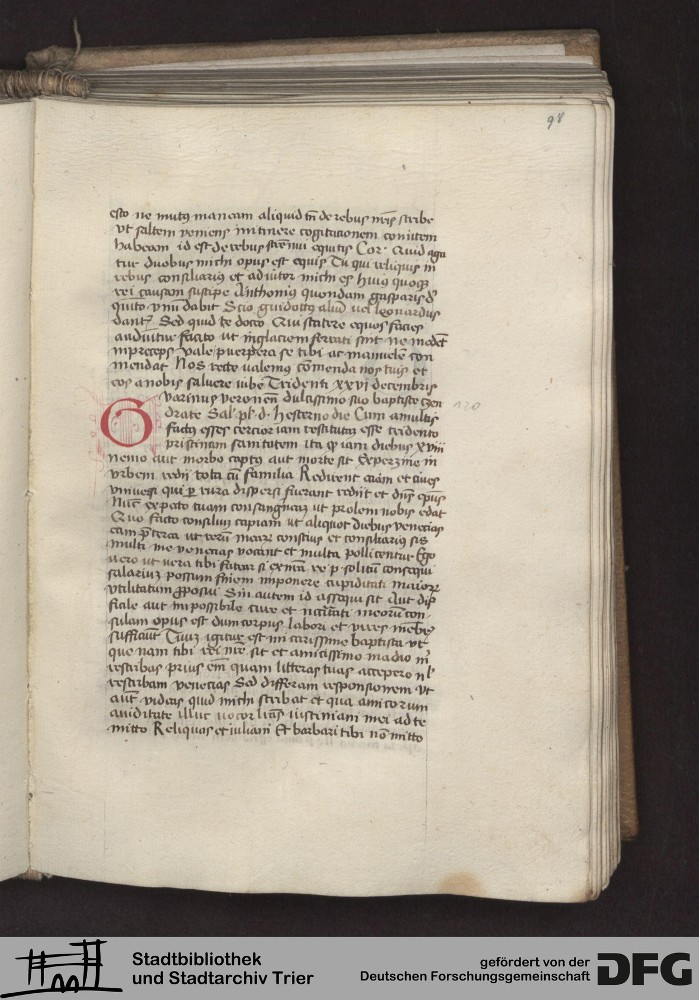 98
esto ne mutus maneam aliquid tn̄ de rebus nr̄is scribe
ut saltem veniens in itinere cogitationem comitem
habeam id est de rebus strēnui equitis Cor. Quid aga
tur duobus michi opus est equis Tu qui reliquis in
rebus consiliarius et adiutor michi es huius quoqꝫ
rei causam suscipe Anthonius quondam gasparis de
quīto vnū dabit Scio guidottus aliud uel leonardus
dant Sed quid te doceo Qui stitere equos facies
audiuitur facito ut in glaciem ferrati sint ne me det
in preceps vale puerpera se tibi ac manuelē com
mendat Nos recte ualemus cōmenda nos tuis et
eos a nobis saluere iube Tridenti xxvi decembris
Guarinus veronen̄ dulcissimo suo baptiste zen
drate Sal. pl. d. Hesterno die Cum a multis 120
factus esses cercior iam restitutā esse tridento
pristinam sanitatem ita qꝫ iam diebus xviii
nemo aut morbo captus aut morte sit
vrbem redii tota cū familia Redeunt etiam et ciues
vniuersi qui per rura dispersi fuerant rediit et dn̄s ep̄us
Nūc expecto tuam consanguineā ut prolem nobis edat
Quo facto consiliū capiam ut aliquot diebus venecias
eam preterea ut rerū mearū conscius et consiliarius sis
multi me venecias vocant et multa pollicentur Ego
vero ut vera tibi fatear si ex mea re per solitū consequi
salariū possum finem imponere cupiditati maiorū
vtilitatum Sin autem id assequi sit Aut dif
ficile aut impossibile cure et meorum con-
sulam opus est dum corpus labori et vires
sufficiūt Tuum igitur est mi carissime baptista ut
que nam tibi rei mee sit et amicissimo madio
rescribas prius em̄ quam litteras tuas accepero nl̄
rescribam venecias Sed differam responsionem Ut
aut videas quid michi scribat et qua amicorum
auiditate illuc uocor lr̄as iustiniani mei ad te
mitto Reliquas et iuliani Et barbari tibi nō mitto
Stadtbibliothek
und Stadtarchiv Trier
gefördert von der
Deutschen Forschungsgemeinschaft
DFG